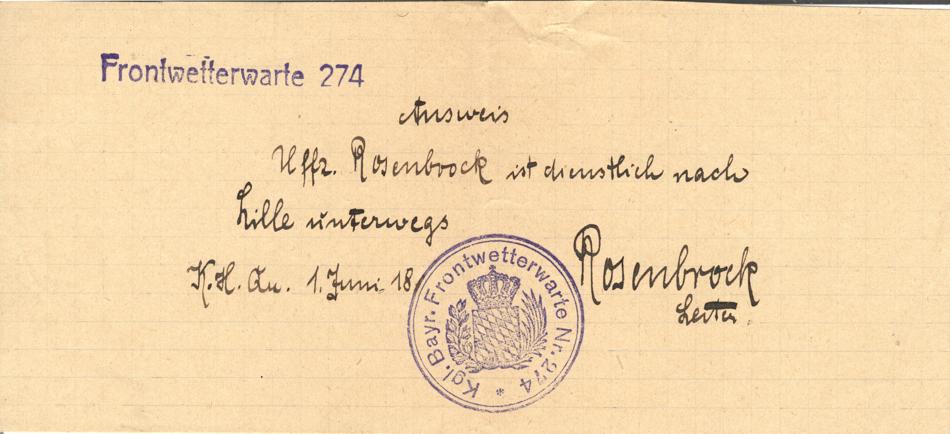 Frontwetterwarte 274
Ausweis
Uffz. Rosenbrock ist dienstlich nach
Lille unterwegs
K. H. Qu. 1. Juni 18.
Rosenbrock
Leiter.
Kgl. Bayr. Frontwetterwarte Nr. 274 *